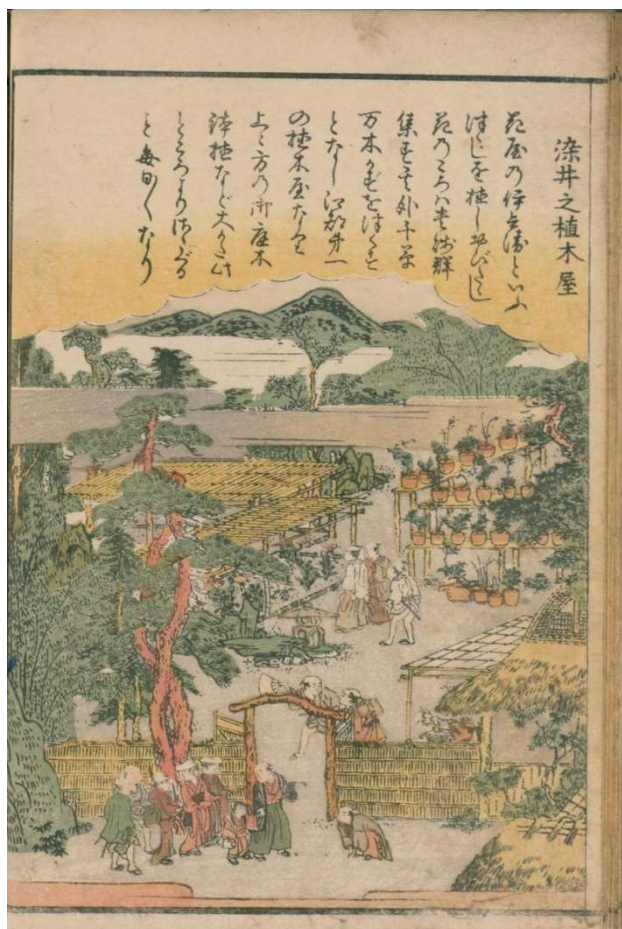 染井之植木屋
花屋の伊兵衛といふ
つゝじを植しおびたゝし
花のころハ貴賤群
集す其外千草
万木かずをつくさず
となし江都第一
の植木屋なり
上々方の御庭木
鉢植など大かた此
ところよりさゝぐる
こと毎日〳〵なり